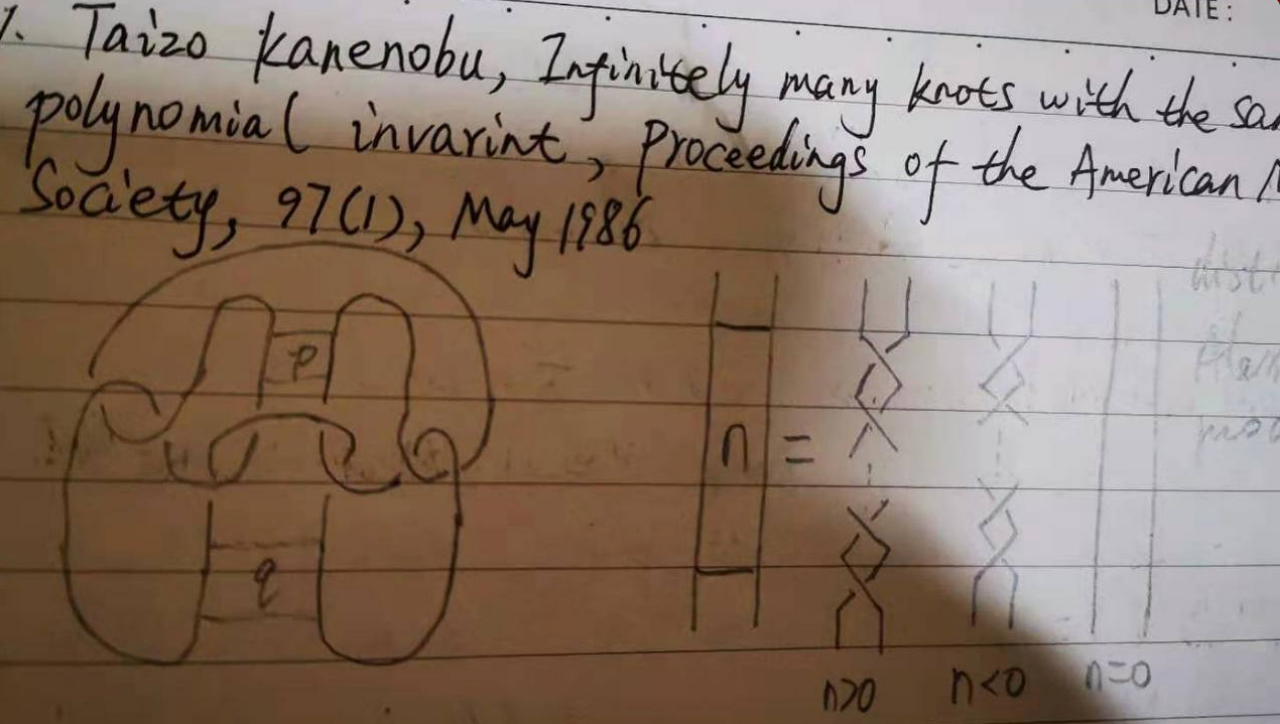 DATE:
1. Taizo Kanenobu, Infinitely many knots with the sa
polynomial invarint, Proceedings of the American
Society, 97(1), May 1986
p
q
n =
n>0 n<0 n=0